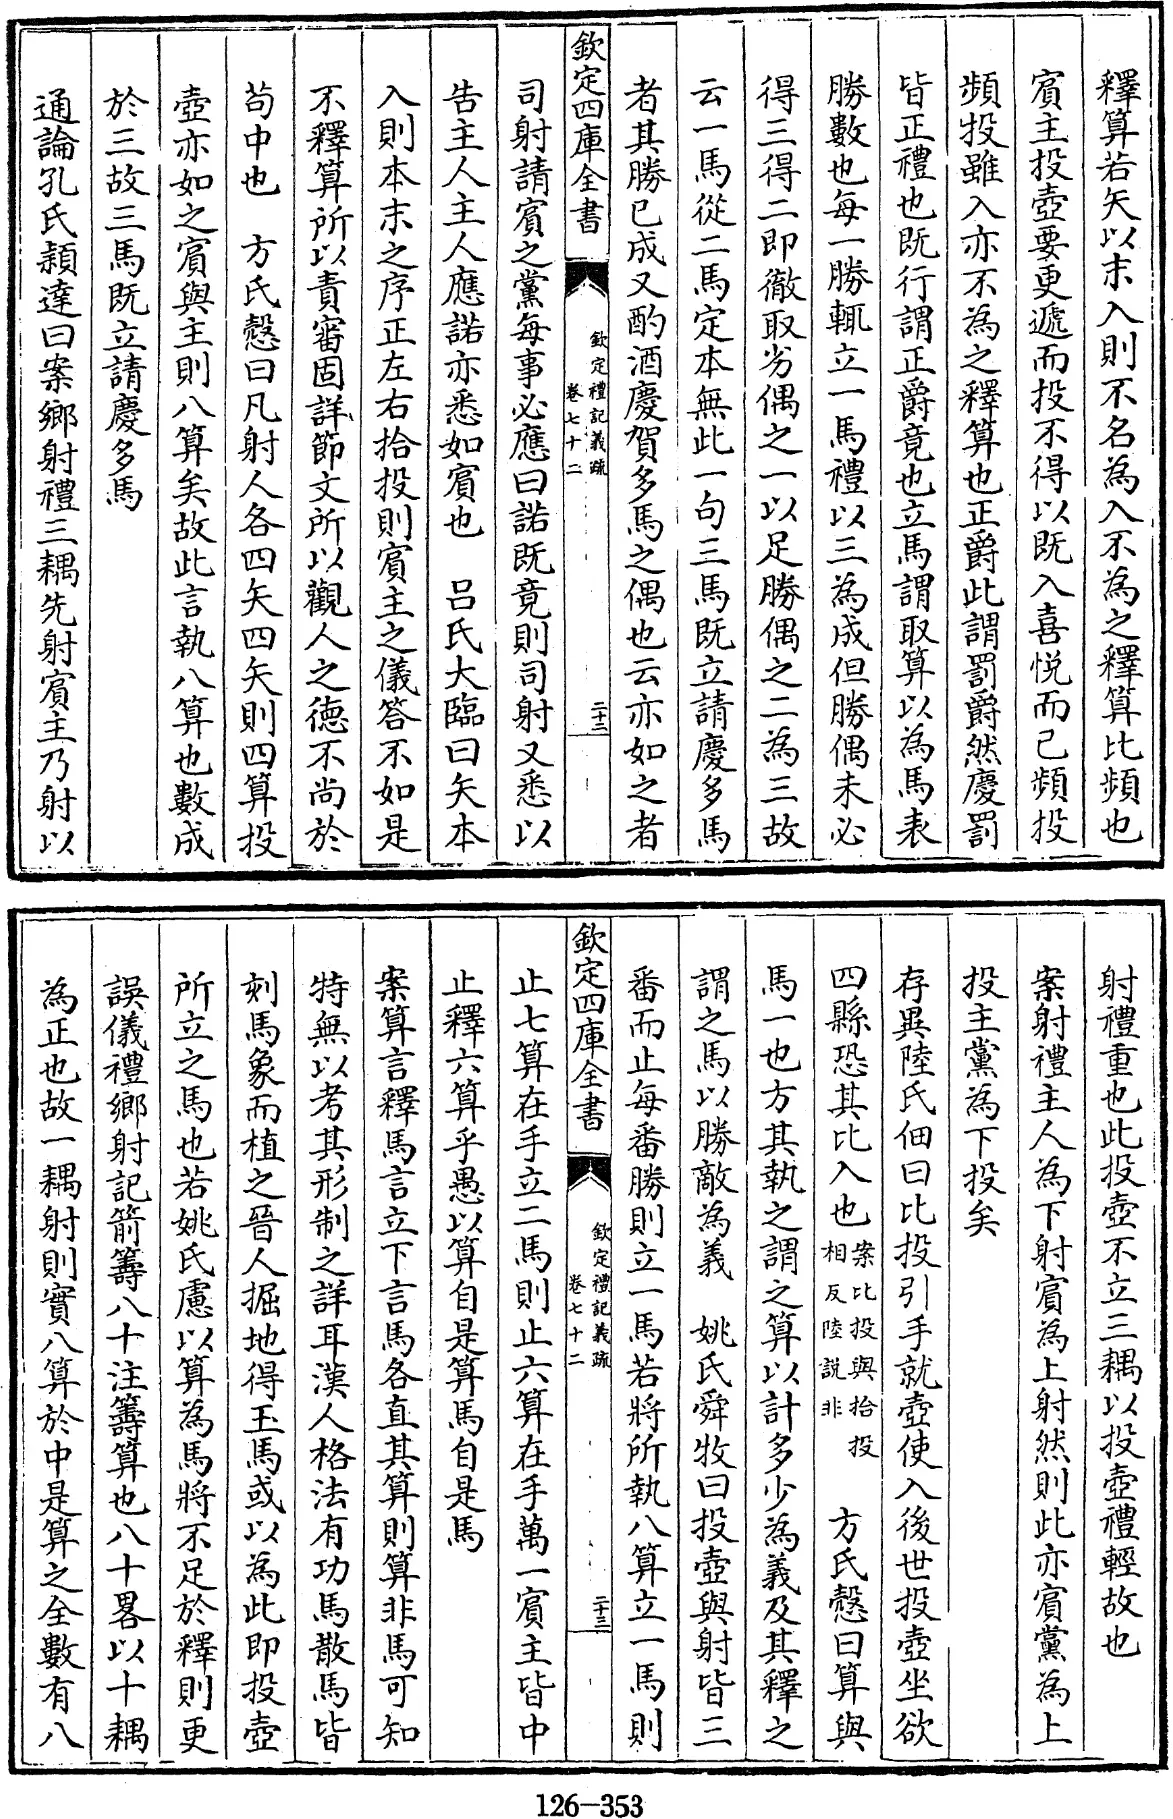 釋算若矢以末入則不名為入不為之釋算比頻也
賓主投壺要更遞而投不得以既入喜悅而己頻投
頻投雖入亦不為之釋算也正爵此謂罰爵然慶罰
皆正禮也既行謂正爵竟也立馬謂取算以為馬表
勝數也每一勝輒立一馬禮以三為成但勝偶未必
得三得二即徹取劣偶之一以足勝偶之二為三故
云一馬從二馬定本無此一句三馬既立請慶多馬
者其勝已成又酌酒慶賀多馬之偶也云亦如之者
欽定四庫全書
欽定禮記義疏
卷七十二
二十二
司射請賓之黨每事必應曰諾既竟則司射又悉以
告主人主人應諾亦悉如賓也 呂氏大臨曰矢本
入則本末之序正左右拾投則賓主之儀答不如是
不釋算所以責審固詳節文所以觀人之德不尚於
茍中也 方氏慤曰凡射人各四矢四矢則四算投
壺亦如之賓與主則八算矣故此言執八算也數成
於三故三馬既立請慶多馬
通論孔氏穎達曰案鄉射禮三耦先射賓主乃射以
射禮重也此投壺不立三耦以投壺禮輕故也
案射禮主人為下射賓為上射然則此亦賓黨為上
投主黨為下投矣
存異陸氏佃曰比投引手就壺使入後世投壺坐欲
四縣恐其比入也案比投與拾投相反陸說非 方氏慤曰算與
馬一也方其執之謂之算以計多少為義及其釋之
謂之馬以勝敵為義 姚氏舜牧曰投壺與射皆三
番而止每番勝則立一馬若將所執八算立一馬則
欽定四庫全書
欽定禮記義疏
卷七十二
二十三
止七算在手立二馬則止六算在手萬一賓主皆中
止釋六算乎愚以算自是算馬自是馬
案算言釋馬言立下言馬各直其算則算非馬可知
特無以考其形制之詳耳漢人格法有功馬散馬皆
刻馬象而植之晉人掘地得玉馬或以為此即投壺
所立之馬也若姚氏慮以算為馬將不足於釋則更
誤儀禮鄉射記箭籌八十注籌算也八十畧以十耦
為正也故一耦射則實八算於中是算之全數有八
126-353